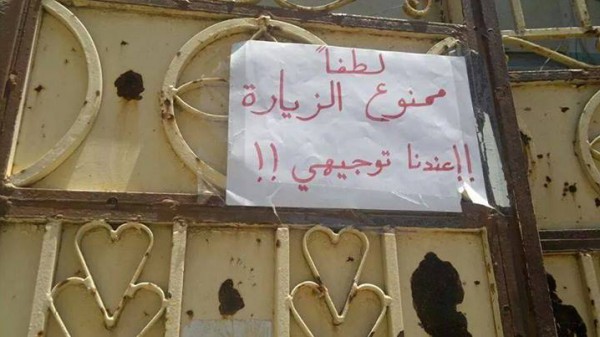 لطفاً
ممنوع الزيارة
!! عندنا توجيهي !!